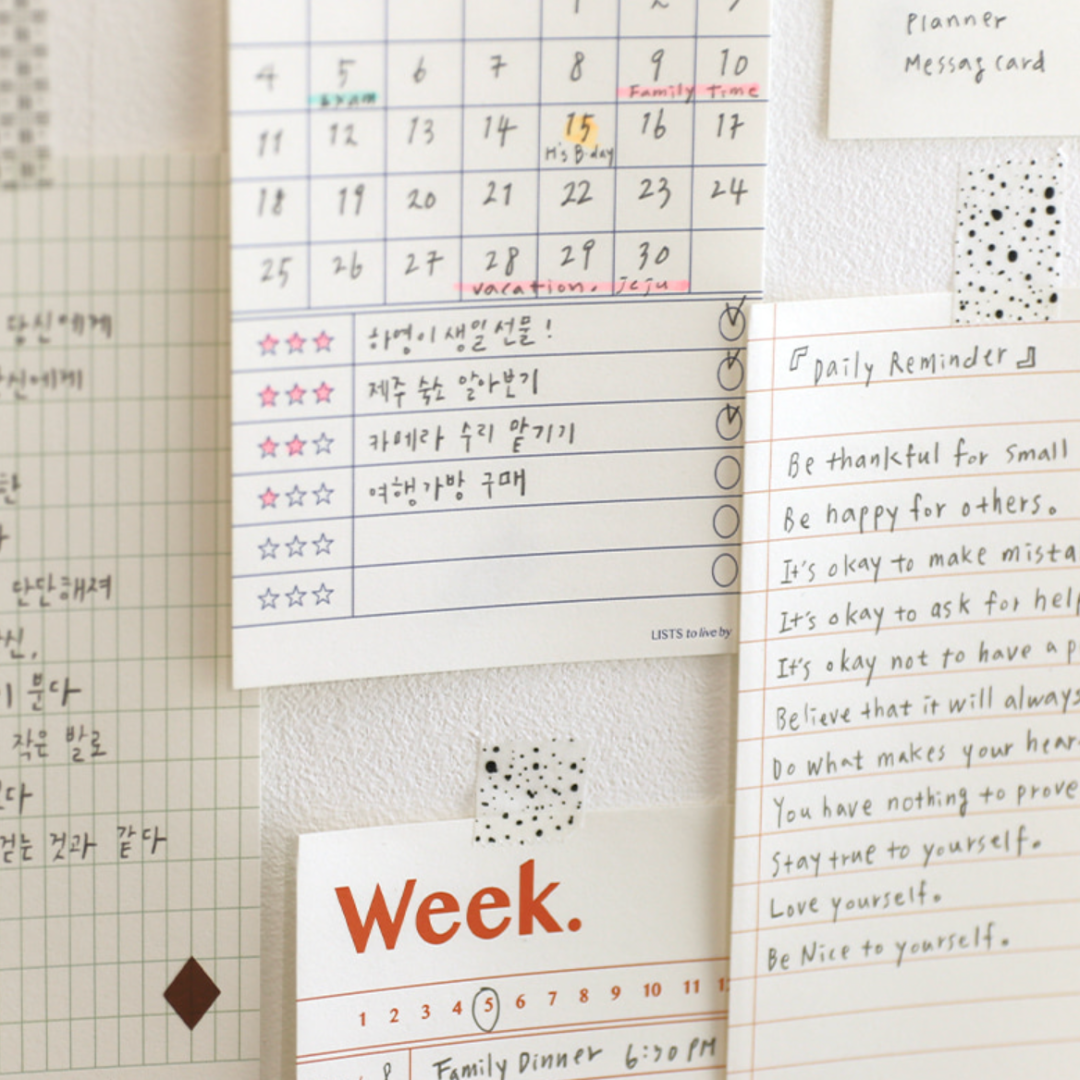 당신에게
당신에게
단단해져
이 분다
작은 발로
걷는 것과 같다
1 2 3
4 5 6 7 8 9 10
Exam Family Time
11 12 13 14 15 16 17
H's B-day
18 19 20 21 22 23 24
25 26 27 28 29 30
vacation. jeju
하영이 생일 선물!
제주 숙소 알아보기
카메라 수리 맡기기
여행가방 구매
LISTS to live by
Week.
1 2 3 4 5 6 7 8 9 10 11
Family Dinner 6:30 PM
Planner
Messag card
『Daily Reminder』
Be thankful for small
Be happy for others.
It's okay to make mista
It's okay to ask for help
It's okay not to have a p
Believe that it will always
Do what makes your hear
You have nothing to prove
Stay true to yourself.
Love yourself.
Be Nice to yourself.